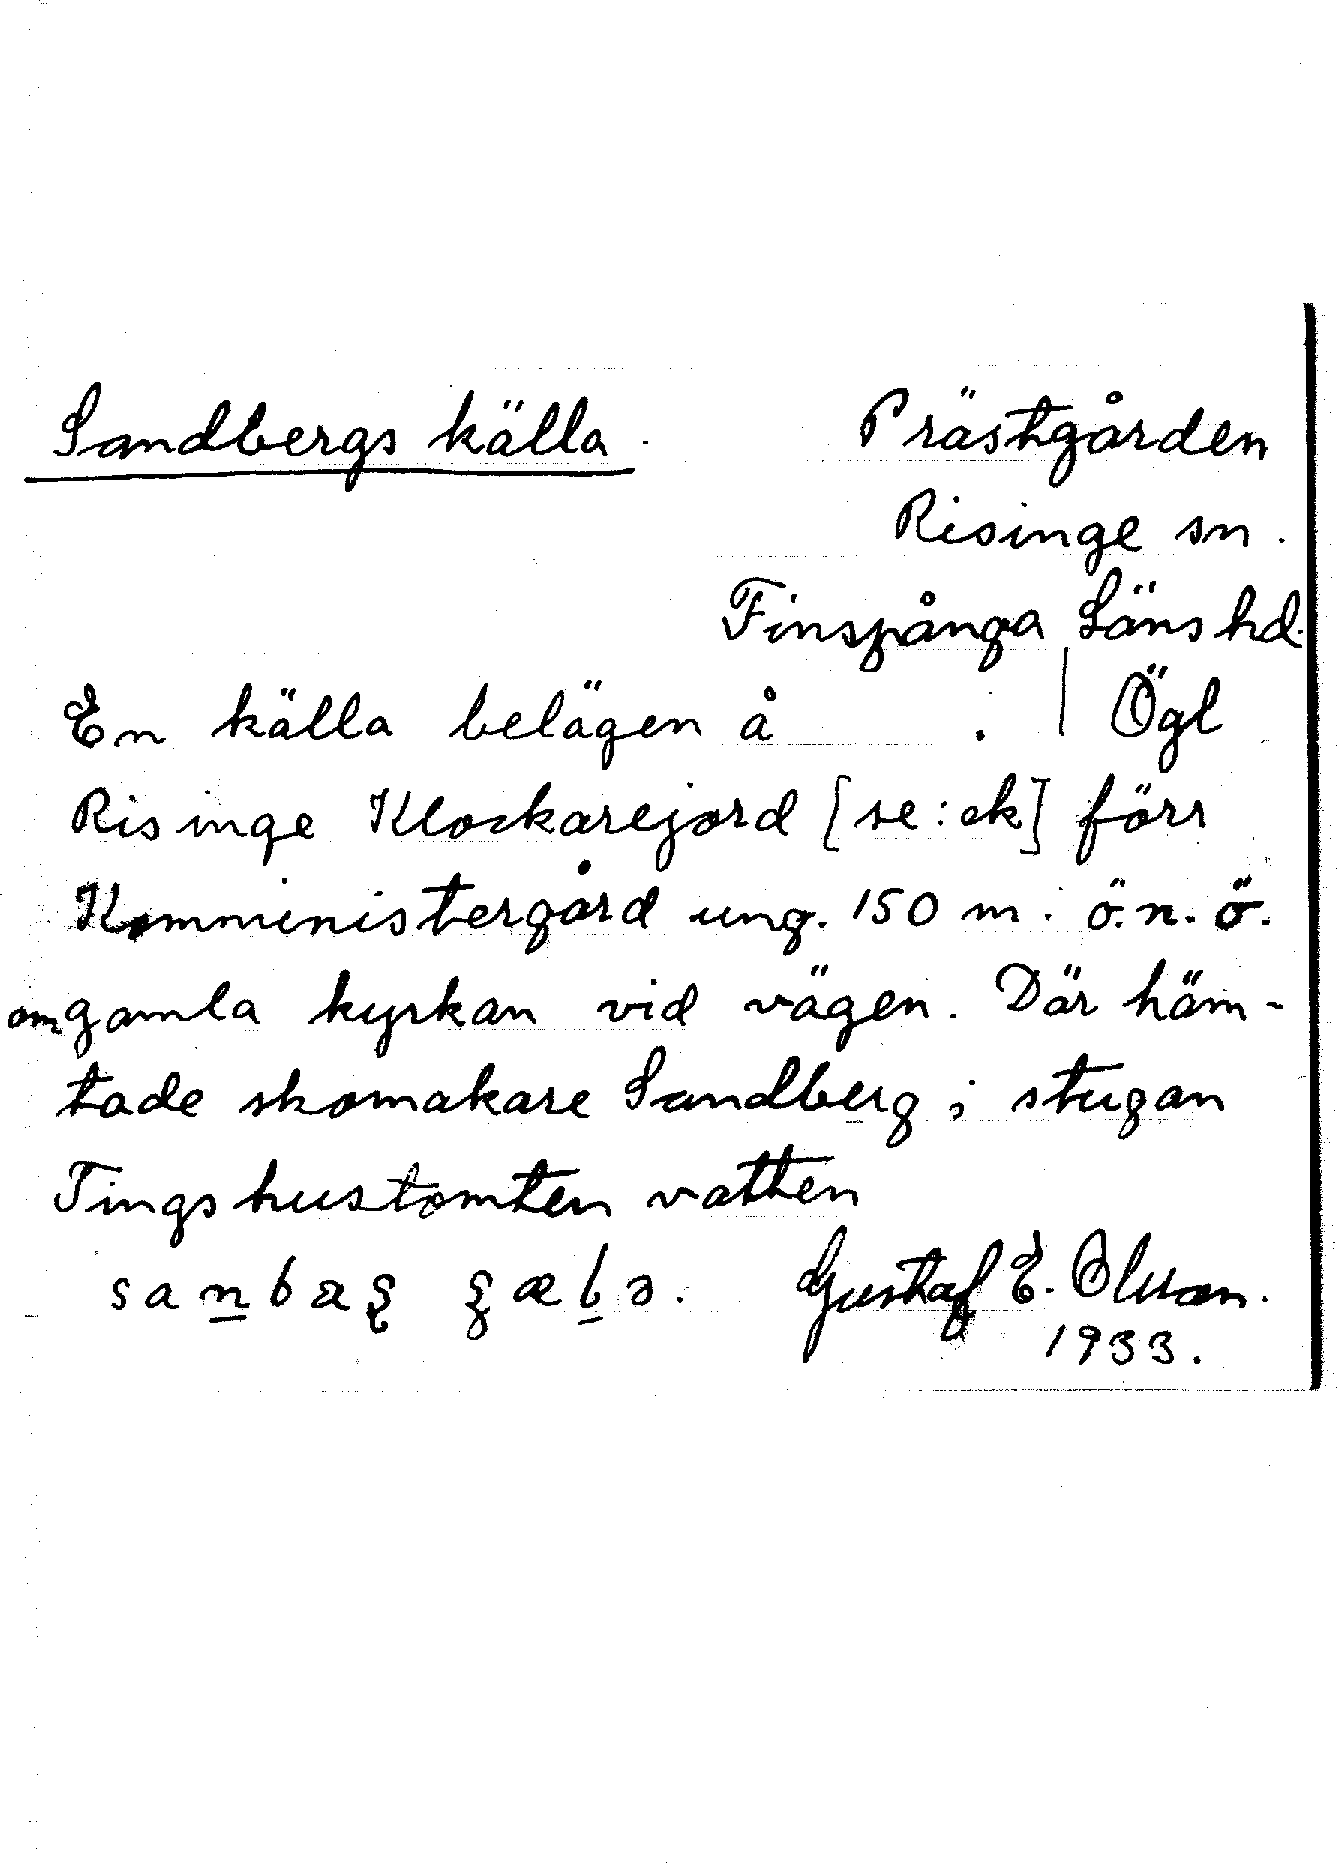 Sandbergs källa. Prästgården
Risinge sn.
Finspånga Läns hd.
En källa belägen å . | Ögl
Risinge Klockarejord [se: ek] förr
Komministergård ung. 150 m. ö.n.ö.
om gamla kyrkan vid vägen. Där häm-
tade skomakare Sandberg i stugan
Tingshustomten vatten
Gustaf E. Olsson.
1933.